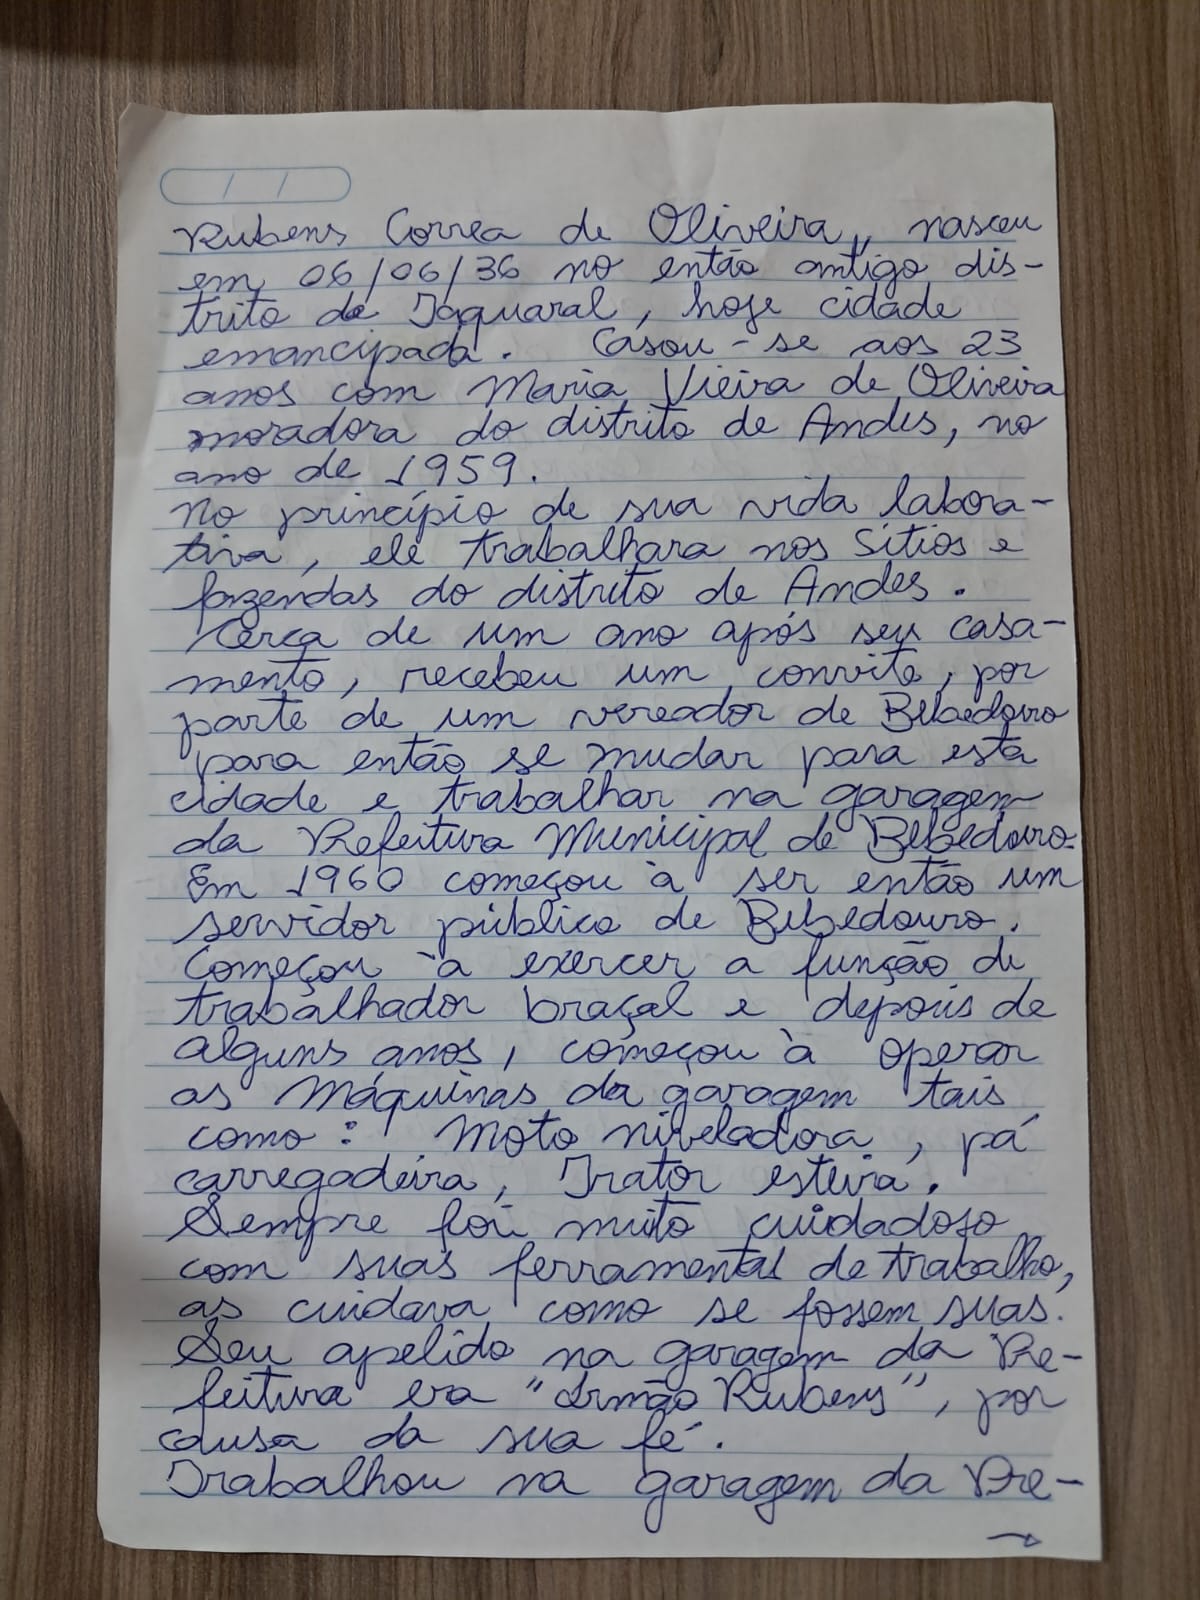 Rubens Correa de Oliveira, nasceu
em 06/06/36 no então antigo dis-
trito de Taquaral, hoje cidade
emancipada. Casou-se aos 23
anos com Maria Vieira de Oliveira
moradora do distrito de Andes, no
ano de 1959.
No princípio de sua vida labora-
tiva, ele trabalhara nos Sítios e
fazendas do distrito de Andes.
Cerca de um ano após seu casa-
mento, recebeu um convite, por
parte de um vereador de Bebedouro
para então se mudar para esta
cidade e trabalhar na garagem
da Prefeitura Municipal de Bebedouro.
Em 1960 começou à ser então um
servidor público de Bebedouro.
Começou à exercer a função de
trabalhador braçal e depois de
alguns anos, começou à operar
as Máquinas da garagem tais
como: Moto niveladora, pá
carregadeira, Trator esteira.
Sempre foi muito cuidadoso
com suas ferramentas de trabalho,
as cuidava como se fossem suas.
Seu apelido na garagem da Pre-
feitura era "Irmão Rubens", por
causa da sua fé.
Trabalhou na garagem da Pre-
→